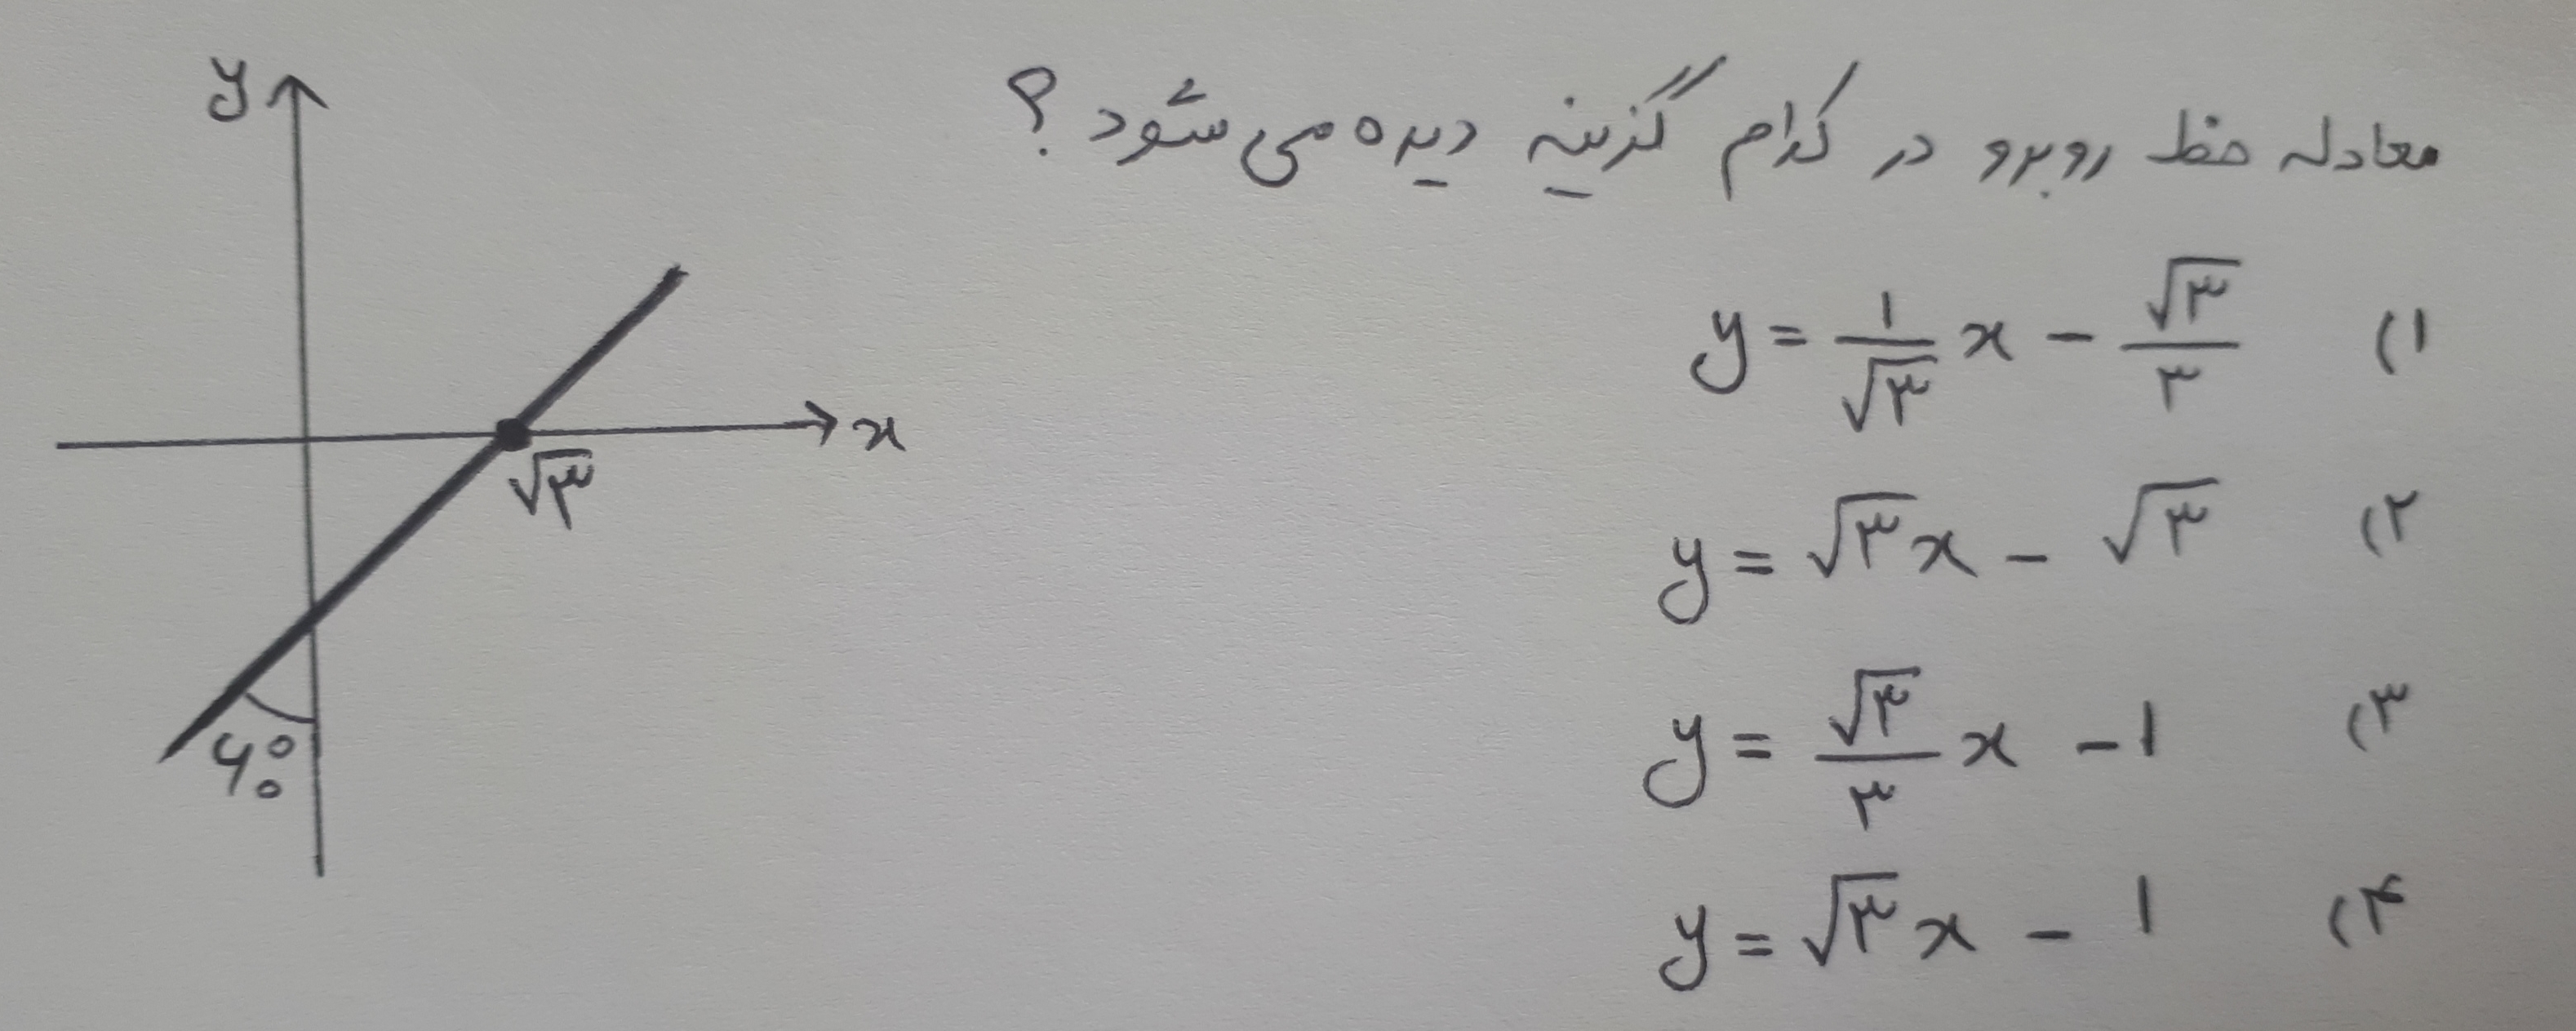 معادله خط روبرو در کدام گزینه دیده می شود ؟
y
x
√۳
۶۰°
۱) y = ۱/√۳ x - √۳/۳
۲) y = √۳x - √۳
۳) y = √۳/۳ x - ۱
۴) y = √۳x - ۱